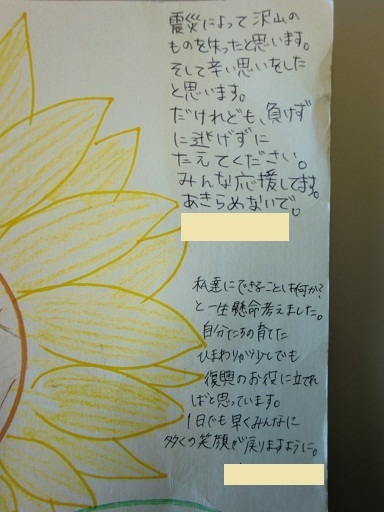 震災によって沢山の
ものを失ったと思います。
そして辛い思いをした
と思います。
だけれども、負けず
に逃げずに
たえてください。
みんな応援してます。
あきらめないで。
私達にできることは何か?
と一生懸命考えました。
自分たちの育てた
ひまわりが少しでも
復興のお役に立てれ
ばと思っています。
1日でも早くみんなに
多くの笑顔が戻りますように。